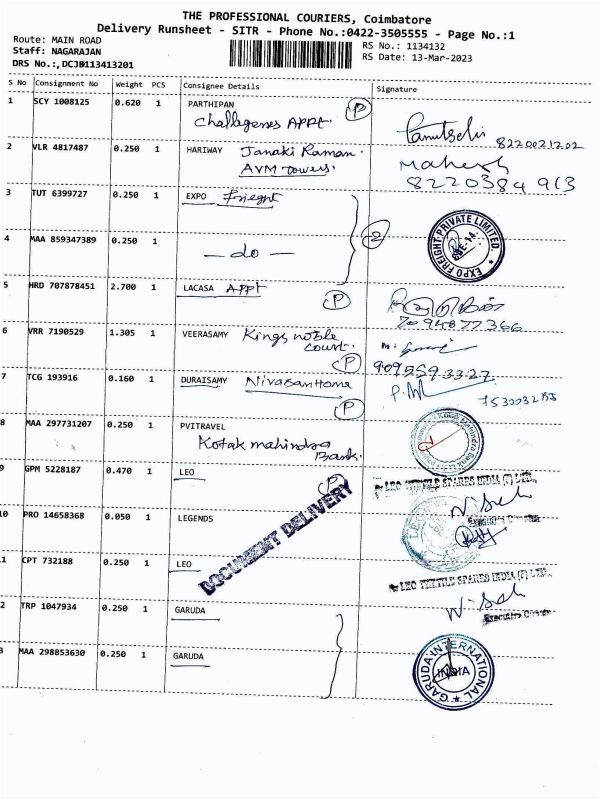 THE PROFESSIONAL COURIERS, Coimbatore
Delivery Runsheet - SITR - Phone No.:0422-3505555 - Page No.:1
Route: MAIN ROAD
Staff: NAGARAJAN
DRS No.:,DCJB113413201
RS No.: 1134132
RS Date: 13-Mar-2023
S No Consignment No Weight PCS Consignee Details Signature
1 SCY 1008125 0.620 1 PARTHIPAN P
Appt.
2 VLR 4817487 0.250 1 HARIWAY Janaki Raman.
AVM towers.
Mahesh
8220384913
3 TUT 6399727 0.250 1 EXPO Frieght
2
EXPO FREIGHT PRIVATE LIMITED.
4 MAA 859347389 0.250 1 - do -
5 HRD 707878451 2.700 1 LACASA APPt
P
7094877366
6 VRR 7190529 1.305 1 VEERASAMY Kings noble
court.
P
9095593327
7 TCG 193916 0.160 1 DURAISAMY Nivasan Home
P
8 MAA 297731207 0.250 1 PVITRAVEL
Kotak mahindra
Bank.
9 GPM 5228187 0.470 1 LEO
P
LEO TEXTILE SPARES INDIA (P) LTD.,
10 PRO 14658368 0.050 1 LEGENDS
DOCUMENT DELIVERY
1 CPT 732188 0.250 1 LEO
LEO TEXTILE SPARES INDIA (P) LTD.,
2 TRP 1047934 0.250 1 GARUDA
3 MAA 298853630 0.250 1 GARUDA
GARUDA INTERNATIONAL
INDIA